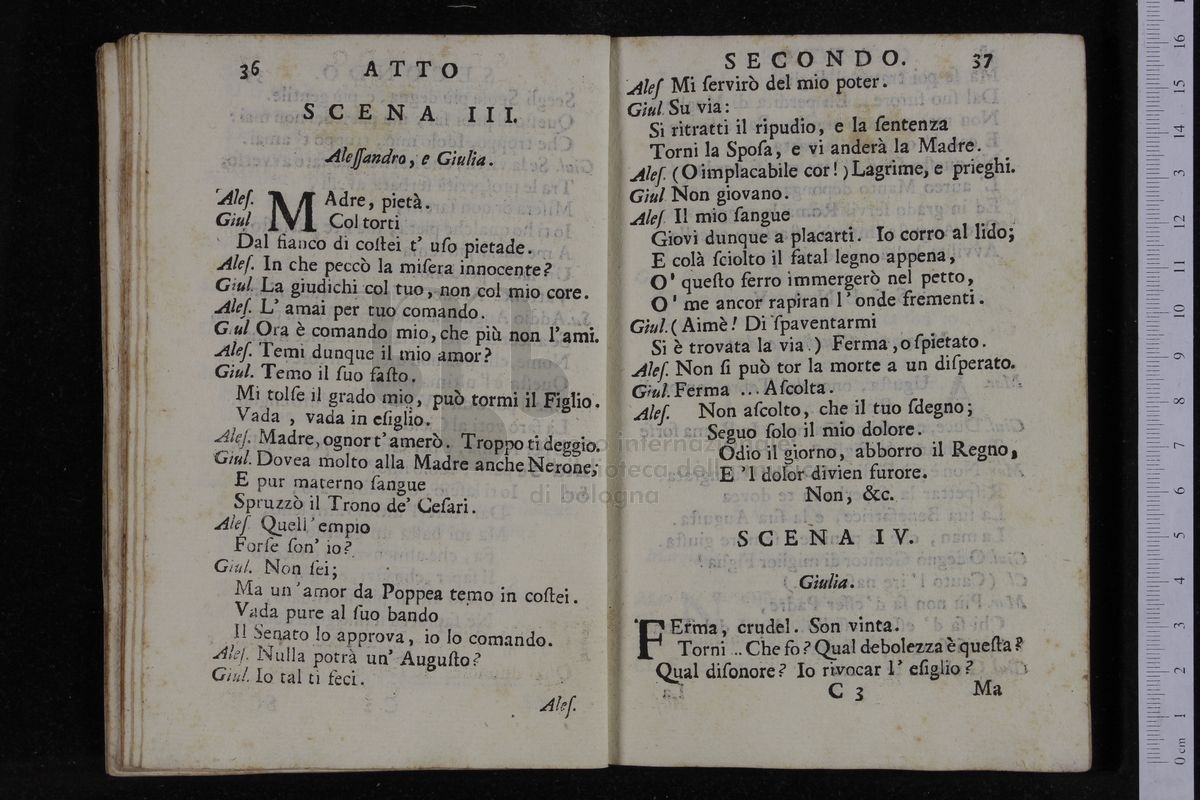 36 ATTO
SCENA III.
Aleſſandro, e Giulia.
Aleſ. MAdre, pietà.
Giul. Col torti
Dal fianco di coſtei t' uſo pietade.
Aleſ. In che peccò la miſera innocente?
Giul. La giudichi col tuo, non col mio core.
Aleſ. L' amai per tuo comando.
G.ul Ora è comando mio, che più non l'ami.
Aleſ. Temi dunque il mio amor?
Giul. Temo il ſuo faſto.
Mi tolſe il grado mio, può tormi il Figlio.
Vada, vada in eſiglio.
Aleſ. Madre, ognor t'amerò. Troppo ti deggio.
Giul. Dovea molto alla Madre anche Nerone;
E pur materno ſangue
Spruzzò il Trono de' Ceſari.
Aleſ. Quell'empio
Forſe ſon' io?
Giul. Non ſei;
Ma un'amor da Poppea temo in coſtei.
Vada pure al ſuo bando
Il Senato lo approva, io lo comando.
Aleſ. Nulla potrà un' Auguſto?
Giul. Io tal ti feci.
Aleſ.
SECONDO. 37
Aleſ Mi ſervirò del mio poter.
Giul. Su via:
Si ritratti il ripudio, e la ſentenza
Torni la Spoſa, e vi anderà la Madre.
Aleſ. (O implacabile cor!) Lagrime, e prieghi.
Giul Non giovano.
Aleſ. Il mio ſangue
Giovi dunque a placarti. Io corro al lido;
E colà ſciolto il fatal legno appena,
O' queſto ferro immergerò nel petto,
O' me ancor rapiran l'onde frementi.
Giul. (Aimè! Di ſpaventarmi
Si è trovata la via.) Ferma, o ſpietato.
Aleſ. Non ſi può tor la morte a un diſperato.
Giul. Ferma ... Aſcolta.
Aleſ. Non aſcolto, che il tuo ſdegno;
Seguo ſolo il mio dolore.
Odio il giorno, abborro il Regno,
E 'l dolor divien furore.
Non, &c.
SCENA IV.
Giulia.
FErma, crudel. Son vinta.
Torni .. Che fo? Qual debolezza è queſta?
Qual diſonore? Io rivocar l' eſiglio?
C 3 Ma
internazionale
biblioteca della
di bologna